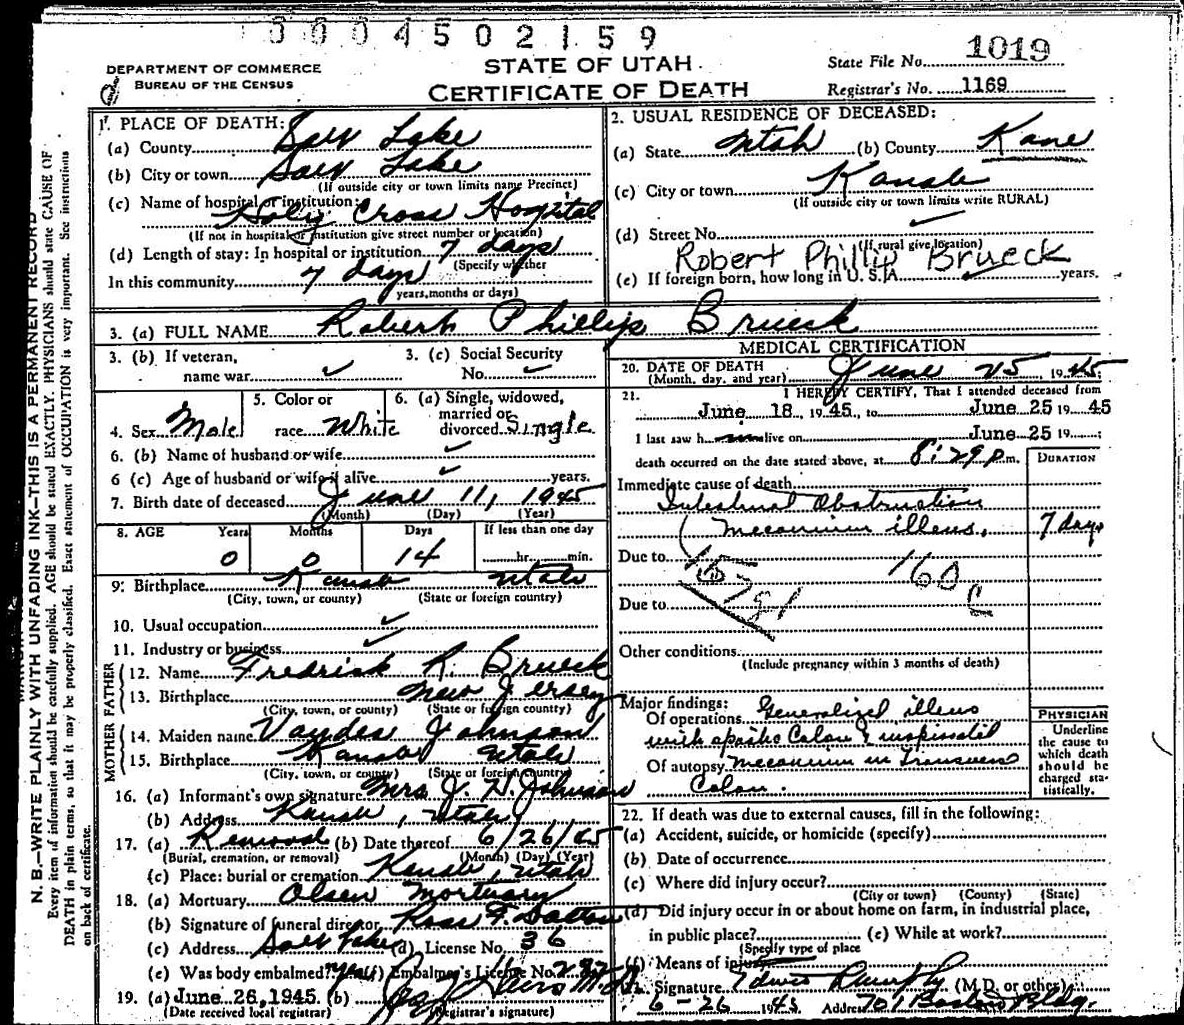 0004502159
DEPARTMENT OF COMMERCE
BUREAU OF THE CENSUS
STATE OF UTAH
CERTIFICATE OF DEATH
State File No. 1019
Registrar's No. 1169
N. B.—WRITE PLAINLY WITH UNFADING INK—THIS IS A PERMANENT RECORD
Every item of information should be carefully supplied. AGE should be stated EXACTLY. PHYSICIANS should state CAUSE OF
DEATH in plain terms, so that it may be properly classified. Exact statement of OCCUPATION is very important. See instructions
on back of certificate.
1. PLACE OF DEATH:
(a) County Salt Lake
(b) City or town Salt Lake
(If outside city or town limits name Precinct)
(c) Name of hospital or institution:
Holy Cross Hospital
(If not in hospital or institution give street number or location)
(d) Length of stay: In hospital or institution 7 days
(Specify whether
In this community 7 days
years, months or days)
2. USUAL RESIDENCE OF DECEASED:
(a) State Utah (b) County Kane
(c) City or town Kanab
(If outside city or town limits write RURAL)
(d) Street No.
(If rural give location)
Robert Phillip Brueck
(e) If foreign born, how long in U. S. A. years.
3. (a) FULL NAME Robert Phillip Brueck
3. (b) If veteran,
name war
3. (c) Social Security
No.
4. Sex Male
5. Color or
race White
6. (a) Single, widowed,
married or
divorced Single
6. (b) Name of husband or wife
6 (c) Age of husband or wife if alive years.
7. Birth date of deceased June 11, 1945
(Month) (Day) (Year)
8. AGE Years Months Days If less than one day
0 0 14 hr. min.
9. Birthplace Kanab Utah
(City, town, or county) (State or foreign country)
10. Usual occupation
11. Industry or business
FATHER
12. Name Fredrick R. Brueck
13. Birthplace New Jersey
(City, town, or county) (State or foreign country)
MOTHER
14. Maiden name Johnson
15. Birthplace Kanab Utah
(City, town, or county) (State or foreign country)
16. (a) Informant's own signature Mrs J. H. Johnson
(b) Address Kanab, Utah
17. (a) Removal (b) Date thereof 6/26/45
(Burial, cremation, or removal) (Month) (Day) (Year)
(c) Place: burial or cremation Kanab, Utah
18. (a) Mortuary Olsen Mortuary
(b) Signature of funeral director
(c) Address Salt Lake (d) License No. 36
(e) Was body embalmed? yes (f) Embalmer's License No.
19. (a) June 26, 1945 (b)
(Date received local registrar) (Registrar's signature)
MEDICAL CERTIFICATION
20. DATE OF DEATH
(Month, day, and year) June 25, 1945
21. I HEREBY CERTIFY, That I attended deceased from
June 18, 1945, to June 25 1945
I last saw h alive on June 25 19 ;
death occurred on the date stated above, at 8:29 p.m.
DURATION
Immediate cause of death
Intestinal Obstruction
(Meconium illeus, 7 days
Due to
157&1 160c
Due to
Other conditions
(Include pregnancy within 3 months of death)
Major findings:
Of operations Generalized illeus
with Colon & inspissated
Of autopsy meconium in Transverse
Colon.
PHYSICIAN
Underline
the cause to
which death
should be
charged sta-
tistically.
22. If death was due to external causes, fill in the following:
(a) Accident, suicide, or homicide (specify)
(b) Date of occurrence
(c) Where did injury occur?
(City or town) (County) (State)
(d) Did injury occur in or about home on farm, in industrial place,
in public place? (e) While at work?
(Specify type of place
(f) Means of injury
Signature (M.D. or other)
6-26 1945 Address 701 Boston Bldg.